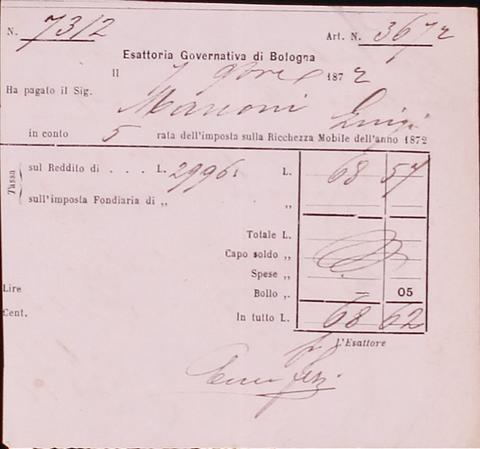 N. 7312 Art. N. 3672
Esattoria Governativa di Bologna
Il 7 9bre 1872
Ha pagato il Sig. Marconi Luigi
in conto 5 rata dell'imposta sulla Ricchezza Mobile dell'anno 1872
Tassa
sul Reddito di . . . L. 2996. L. 68 57
sull'imposta Fondiaria di „ „
Totale L.
Capo soldo „
Spese „
Lire Bollo „. — 05
Cent. In tutto L. 68 62
L'Esattore